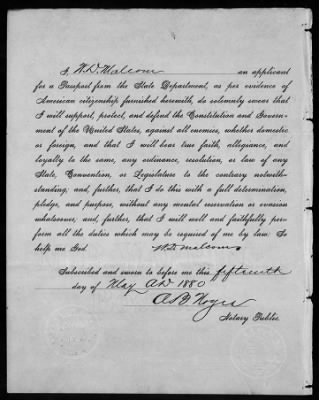 I, W. D. Malcom an applicant
for a Passport from the State Department, as per evidence of
American citizenship furnished herewith, do solemnly swear that
I will support, protect, and defend the Constitution and Govern-
ment of the United States, against all enemies, whether domestic
or foreign, and that I will bear true faith, allegiance, and
loyalty to the same, any ordinance, resolution, or law of any
State, Convention, or Legislature to the contrary notwith-
standing, and, further, that I do this with a full determination,
pledge, and purpose, without any mental reservation or evasion
whatsoever, and, further, that I will well and faithfully per-
form all the duties which may be required of me by law. So
help me God. W. D. Malcom
Subscribed and sworn to before me this fifteenth
day of May A.D. 1880
A. B. Noyes
Notary Public.